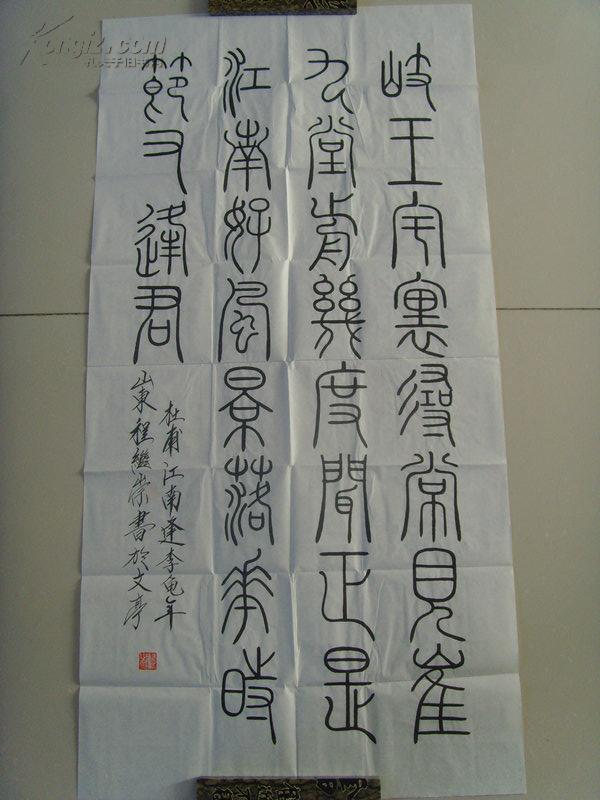 岐王宅裏尋常見崔
九堂前幾度聞正是
江南好風景落花時
節又逢君
杜甫江南逢李龟年
山東程繼崇書於文亭
Kongfz.com
孔夫子旧书网